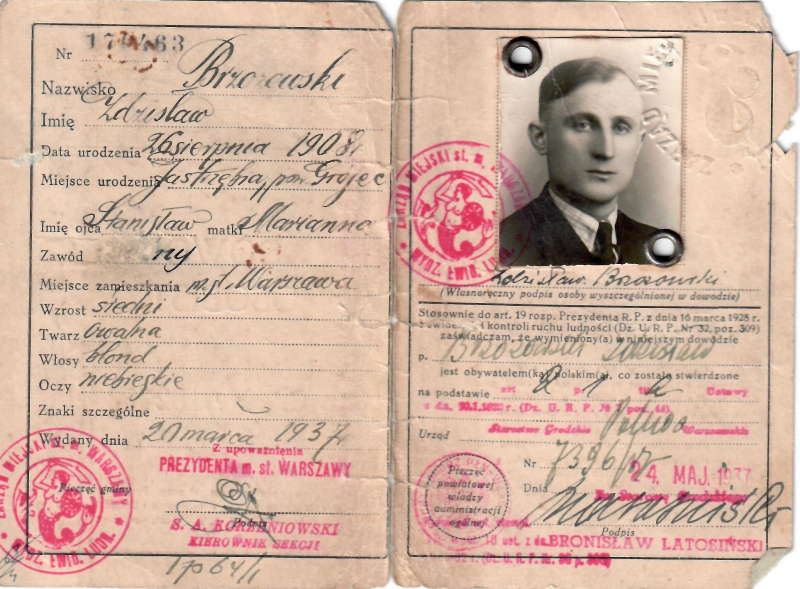 Nr
Nazwisko Brzozowski
Imię Zdzisław
Data urodzenia 26 sierpnia 1908 r.
Miejsce urodzenia Jastrzębia, pow. Grójec
Imię ojca Stanisław matki Marianna
Zawód
Miejsce zamieszkania m. st. Warszawa
Wzrost średni
Twarz owalna
Włosy blond
Oczy niebieskie
Znaki szczególne
Wydany dnia 20 marca 1937 r.
Z upoważnienia
PREZYDENTA m. st. WARSZAWY
Pieczęć gminy
Podpis
KIEROWNIK SEKCJI
ZARZĄD MIEJSKI st. m. WARSZAWY
WYDZ. EWID. LUDN.
ZARZĄD MIEJSKI st. m. WARSZAWY
WYDZ. EWID. LUDN.
Zdzisław Brzozowski
(Własnoręczny podpis osoby wyszczególnionej w dowodzie)
Stosownie do art. 19 rozp. Prezydenta R. P. z dnia 16 marca 1928 r.
i kontroli ruchu ludności (Dz. U. R. P. Nr 32, poz. 309)
zaświadczam, że wymieniony(a) w niniejszym dowodzie
p. Brzozowski Zdzisław
jest obywatelem(ką) polskim(ą), co zostało stwierdzone
na podstawie art 2 p 1 Ustawy
(Dz. U. R. P. № 7 poz. 44).
Starostwo Grodzkie Warszawskie
Urząd
Podpis
Nr 7396/37
Dnia 24 MAJ. 1937
Pieczęć
powiatowej
władzy
administracji
ogólnej
BRONISŁAW LATOSIŃSKI